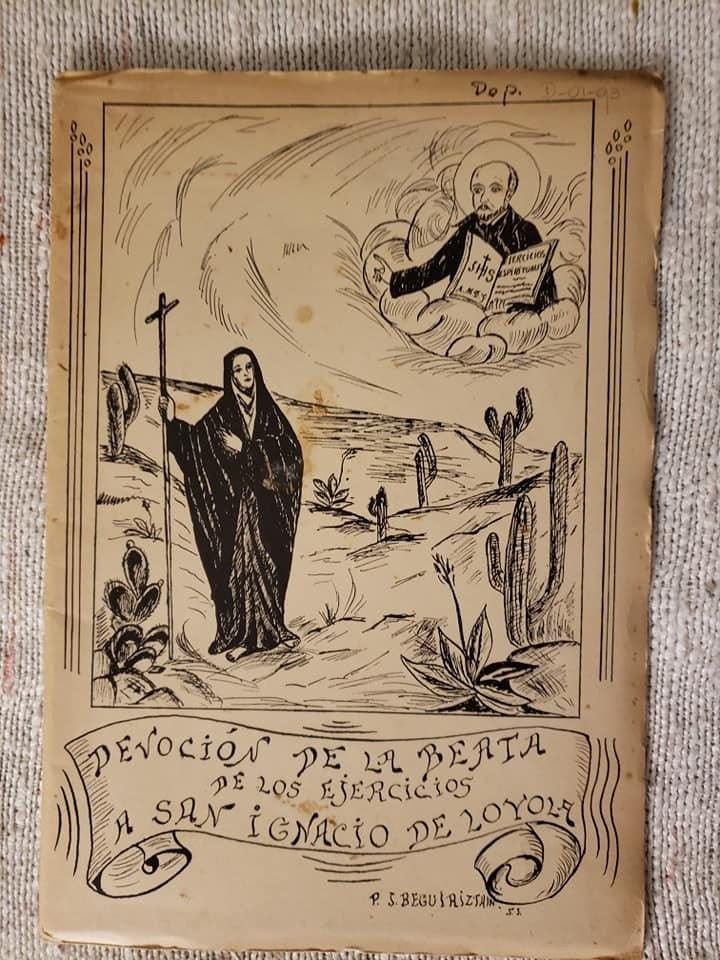 Dep. D-01-93
JHS
A.M.D.G
EJERCICIOS
ESPIRITUALES
DEVOCIÓN DE LA BEATA
DE LOS EJERCICIOS
A SAN IGNACIO DE LOYOLA
P. J. BEGUIRIZTAIN
S.J.